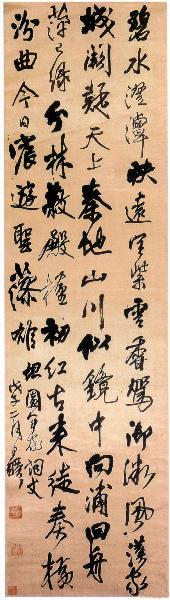 碧水澄潭映遠空紫雲香駕御微風漢家
城闕疑天上秦地山川似鏡中向浦回舟
萍已綠分林蔽殿槿初紅古來徒奏橫
汾曲今日宸遊聖藻雄 坦園年家詞丈
戊子二月王鐸